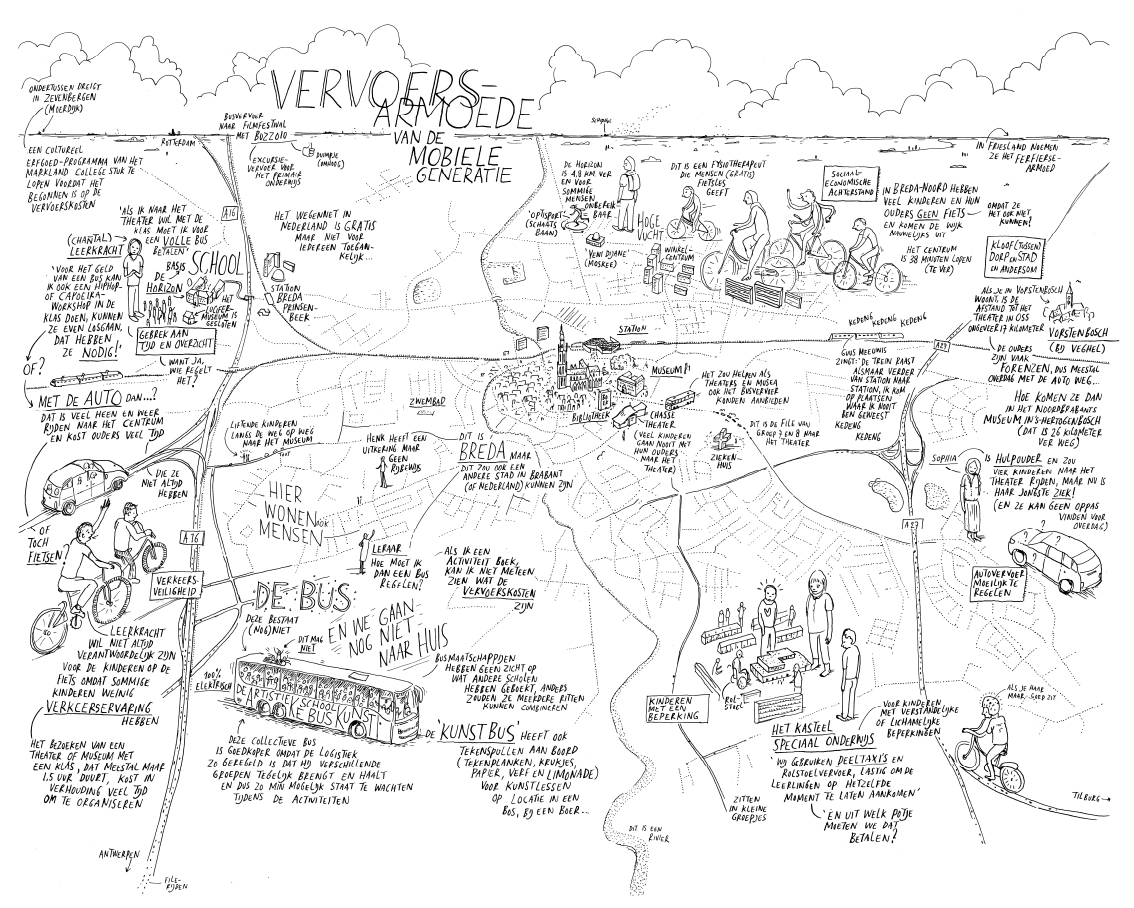 VERVOERS-
ARMOEDE
VAN DE
MOBIELE
GENERATIE
ONDERTUSSEN DREIGT
IN ZEVENBERGEN
(MOERDIJK)
EEN CULTUREEL
ERFGOED-PROGRAMMA VAN HET
MARKLAND COLLEGE STUK TE
LOPEN VOORDAT HET
BEGONNEN IS OP DE
VERVOERSKOSTEN
ROTTERDAM
BUSVERVOER
NAAR FILMFESTIVAL
MET BUZZO10
DUIMPJE
(OMHOOG)
EXCURSIE-
VERVOER VOOR
HET PRIMAIR
ONDERWIJS
A16
'ALS IK NAAR HET
THEATER WIL MET DE
KLAS MOET IK VOOR
EEN VOLLE BUS
BETALEN'
(CHANTAL)
LEERKRACHT
BASIS
SCHOOL
DE
HORIZON
'VOOR HET GELD
VAN EEN BUS KAN
IK OOK EEN HIPHOP-
OF CAPOEIRA-
WORKSHOP IN DE
KLAS DOEN, KUNNEN
ZE EVEN LOSGAAN,
DAT HEBBEN
ZE NODIG!'
HET
LUCIFER-
MUSEUM IS
GESLOTEN
GEBREK AAN
TIJD EN OVERZICHT
WANT JA,
WIE REGELT
HET?
HET WEGENNET IN
NEDERLAND IS GRATIS
MAAR NIET VOOR
IEDEREEN TOEGAN-
KELIJK...
STATION
BREDA
PRINSEN-
BEEK
OF?
MET DE AUTO DAN...?
DAT IS VEEL HEEN EN WEER
RIJDEN NAAR HET CENTRUM
EN KOST OUDERS VEEL TIJD
DIE ZE
NIET ALTIJD
HEBBEN
OF
TOCH
FIETSEN?
A16
VERKEERS-
VEILIGHEID
LEERKRACHT
WIL NIET ALTIJD
VERANTWOORDELIJK ZIJN
VOOR DE KINDEREN OP DE
FIETS OMDAT SOMMIGE
KINDEREN WEINIG
VERKEERSERVARING
HEBBEN
HET BEZOEKEN VAN EEN
THEATER OF MUSEUM MET
EEN KLAS, DAT MEESTAL MAAR
1,5 UUR DUURT, KOST IN
VERHOUDING VEEL TIJD
OM TE ORGANISEREN
ANTWERPEN
FILE-
RIJDEN
LIFTENDE KINDEREN
LANGS DE WEG OP WEG
NAAR HET MUSEUM
ZWEMBAD
HENK HEEFT EEN
UITKERING MAAR
GEEN
RIJBEWIJS
DIT IS
BREDA MAAR
DIT ZOU OOK EEN
ANDERE STAD IN BRABANT
(OF NEDERLAND) KUNNEN ZIJN
HIER
WONEN OOK
MENSEN
LERAAR
HOE MOET IK
DAN EEN BUS
REGELEN?
ALS IK EEN
ACTIVITEIT BOEK,
KAN IK NIET METEEN
ZIEN WAT DE
VERVOERSKOSTEN
ZIJN
DE BUS
DEZE BESTAAT
(NOG) NIET
DIT MAG
NIET
EN WE GAAN
NOG NIET
NAAR HUIS
100%
ELEKTRISCH
DE ARTISTIEKE BUS
SCHOOL
KUNST
BUSMAATSCHAPPIJEN
HEBBEN GEEN ZICHT OP
WAT ANDERE SCHOLEN
HEBBEN GEBOEKT, ANDERS
ZOUDEN ZE MEERDERE RITTEN
KUNNEN COMBINEREN
DEZE COLLECTIEVE BUS
IS GOEDKOPER OMDAT DE LOGISTIEK
ZO GEREGELD IS DAT HIJ VERSCHILLENDE
GROEPEN TEGELIJK BRENGT EN HAALT
EN DUS ZO MIN MOGELIJK STAAT TE WACHTEN
TIJDENS DE ACTIVITEITEN
DE 'KUNSTBUS' HEEFT OOK
TEKENSPULLEN AAN BOORD
(TEKENPLANKEN, KRUKJES,
PAPIER, VERF EN LIMONADE)
VOOR KUNSTLESSEN
OP LOCATIE IN EEN
BOS, BIJ EEN BOER...
DIT IS EEN
RIVIER
SCHIPHOL
DE HORIZON
IS 4,8 KM. VER
EN VOOR
SOMMIGE
MENSEN
ONBEREIK-
BAAR
'OPTISPORT'
(SCHAATS
BAAN)
HOGE
VUCHT
'YENI DIJANE'
(MOSKEE)
WINKEL-
CENTRUM
DIT IS EEN FYSIOTHERAPEUT
DIE MENSEN (GRATIS)
FIETSLES
GEEFT
SOCIAAL-
ECONOMISCHE
ACHTERSTAND
IN BREDA-NOORD HEBBEN
VEEL KINDEREN EN HUN
OUDERS GEEN FIETS
EN KOMEN DE WIJK
NAUWELIJKS UIT
HET CENTRUM
IS 38 MINUTEN LOPEN
(TE VER)
IN FRIESLAND NOEMEN
ZE HET FERFIERSE-
ARMOED
OMDAT ZE
HET OOK NIET
KUNNEN?
KLOOF (TUSSEN)
DORP EN STAD
EN ANDERSOM
ALS JE IN VORSTENBOSCH
WOONT, IS DE
AFSTAND TOT HET
THEATER IN OSS
ONGEVEER 17 KILOMETER
VORSTENBOSCH
(BIJ VEGHEL)
DE OUDERS
ZIJN VAAK
FORENZEN, DUS MEESTAL
OVERDAG MET DE AUTO WEG...
HOE KOMEN ZE DAN
IN HET NOORDBRABANTS
MUSEUM IN 'S-HERTOGENBOSCH
(DAT IS 26 KILOMETER
VER WEG)
STATION
KEDENG KEDENG KEDENG
A27
MUSEUM
BIBLIOTHEEK
CHASSÉ
THEATER
(VEEL KINDEREN
GAAN NOOIT MET
HUN OUDERS
NAAR HET
THEATER)
HET ZOU HELPEN ALS
THEATERS EN MUSEA
OOK HET BUSVERVOER
KONDEN AANBIEDEN
GUUS MEEUWIS
ZINGT: 'DE TREIN RAAST
ALSMAAR VERDER
VAN STATION NAAR
STATION, IK KOM
OP PLAATSEN
WAAR IK NOOIT
BEN GEWEEST
KEDENG
KEDENG
DIT IS DE FILE VAN
GROEP 7 EN 8 NAAR
HET THEATER
ZIEKEN-
HUIS
SOPHIA
IS HULPOUDER EN ZOU
VIER KINDEREN NAAR HET
THEATER RIJDEN, MAAR NU IS
HAAR JONGSTE ZIEK!
(EN ZE KAN GEEN OPPAS
VINDEN VOOR
OVERDAG)
A27
AUTOVERVOER
MOEILIJK TE
REGELEN
KINDEREN
MET EEN
BEPERKING
ROL-
STOEL
HET KASTEEL
SPECIAAL ONDERWIJS
VOOR KINDEREN
MET VERSTANDELIJKE
OF LICHAMELIJKE
BEPERKINGEN
'WIJ GEBRUIKEN DEELTAXI'S EN
ROLSTOELVERVOER, LASTIG OM DE
LEERLINGEN OP HETZELFDE
MOMENT TE LATEN AANKOMEN'
'EN UIT WELK POTJE
MOETEN WE DAT
BETALEN?'
ZITTEN
IN KLEINE
GROEPJES
ALS JE HAAR
MAAR GOED ZIT
TILBURG